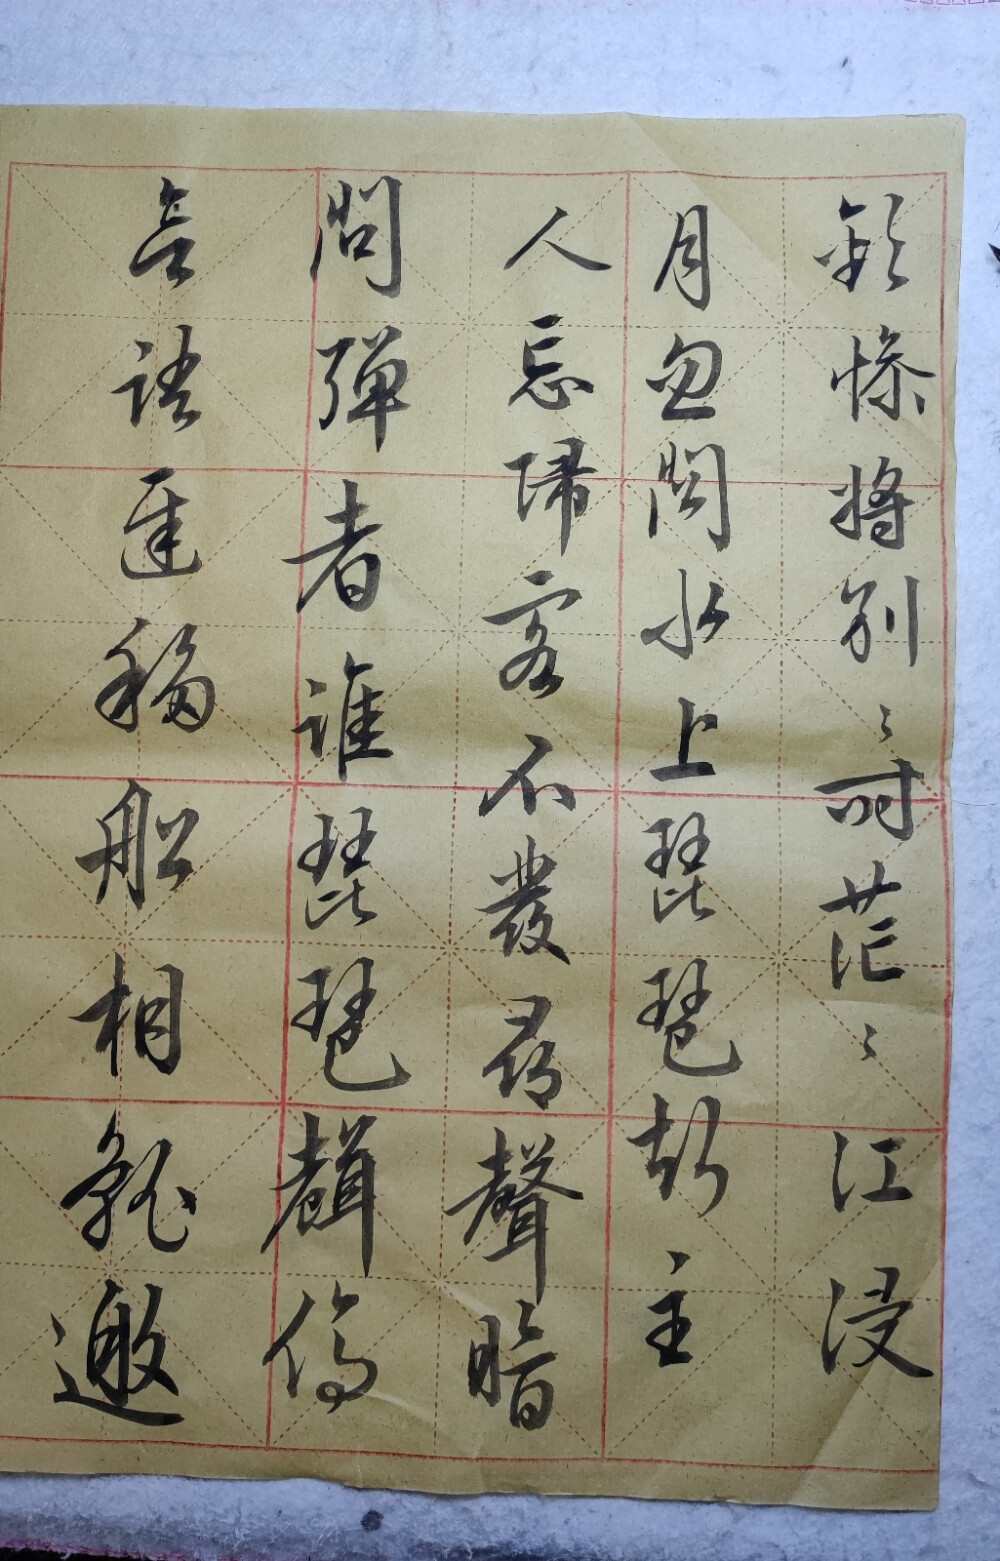 歡慘將別々時茫々江浸
月忽聞水上琵琶聲主
人忘歸客不發尋聲暗
問彈者誰琵琶聲停
語遲移船相就邀